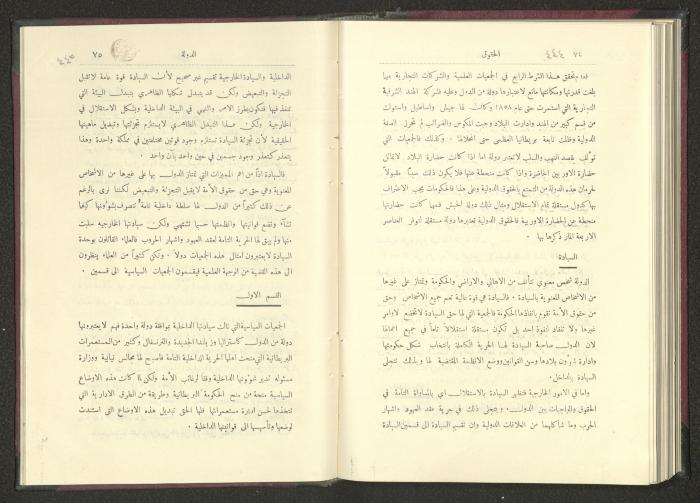 ٧٤ الحقوق ٤٤٤
فما وتحقق هذا الشرط الرابع في الجمعيات العلمية والشركات التجارية مهما
بلغت قدرتها ومكانتها مانع لاعتبارها دولة من الدول وعليه فشركة الهند الشرقية
التجارية التي استمرت حتى عام ١٨٥٨ وكانت لها جيش واساطيل واستولت
من قسم كبير من الهند وادارت البلاد وجبت المكوس والضرائب لم تحرز الصفة
الدولية وظلت تابعة بريطانيا العظمى حتى انحلالها . وكذلك فالجمعيات التي
تؤلف بقصد النهب والسلب لا تعتبر دولة اما اذا كانت حضارة البلاد لا تماثل
حضارة الاوربيين الحاضرة واذا كانت منحطة عنها فلا يكون ذلك سبباً مقبولاً
لحرمان هذه الدولة من التمتع بالحقوق الدولية وعلى هذا فالحكومات يجب الاعتراف
بها كدول مستقلة تمام الاستقلال ومثال ذلك دولة الحبش فمهما كانت حضارتها
منحطة عن الحضارة الاوربية فالحقوق الدولية تعتبرها دولة مستقلة لتوفر العناصر
الاربعة المار ذكرها بها .
السيادة
الدولة شخص معنوي تتألف من الاهالي والاراضي والحكومة وتمتاز على غيرها
من الاشخاص المعنوية بالسيادة . فالسيادة هي قوة عالية تعم جميع الاشخاص وحق
من حقوق الأمة تقوم بانفاذها الحكومة فالجمعية التي لها حق السيادة لا تخضع لاوامر
غيرها ولا تنقاد لنفوذ احد بل تكون مستقلة استقلالاً تاماً في جميع اعمالها
لان الدول صاحبة السيادة لها الحرية الكاملة بانتخاب شكل حكومتها
وادارة شؤون بلادها وسن القوانين ووضع الانظمة المقتضية لها وبذلك تتجلى
السيادة بالداخل.
واما في الامور الخارجية فتظهر السيادة بالاستقلال اي بالمساواة التامة في
الحقوق والواجبات بين الدول . ويتجلى ذلك في حرية عقد العهود واشهار
الحرب وما شاكلهما من العلاقات الدولية وان تقسيم السيادة الى قسمين السيادة
٤٤٥ الدولة ٧٥
الداخلية والسيادة الخارجية تقسيم غير صحيح لأن السيادة قوة عامة لا تقبل
التجزئة والتبعيض ولكن قد يتبدل شكلها الظاهري بتبدل البيئة التي
تنفذ فيها فتكون بطرز الامر والنهي في البيئة الداخلية وبشكل الاستقلال في
الخارجية ولكن هذا التبدل الظاهري لا يستلزم تجزئتها وتبديل ماهيتها
الحقيقية لأن تجزئة السيادة تستلزم وجود قوتين مختلفتين في مملكة واحدة وهذا
يتعذر كتعذر وجود جسمين في حين واحد بآن واحد .
فالسيادة اذاً من اهم المميزات التي تمتاز الدول بها على غيرها من الاشخاص
المعنوية وهي حق من حقوق الأمة لا يقبل التجزئة والتبعيض لكننا نرى بالرغم
عن ذلك كثيراً من الدول لها سلطة داخلية تامة تتصرف بشؤونها كيفما
تشاء وتضع قوانينها وانظمتها حسبما تشتهي ولكن سيادتها الخارجية سلبت
منها ولم يبق لها الحرية التامة لعقد العهود واشهار الحروب فالعلماء القائلون بوحدة
السيادة لا يعتبرون امثال هذه الجمعيات دولاً . ولكن كثيراً من العلماء ينظرون
الى هذه القضية من الوجهة العلمية فيقسمون الجمعيات السياسية الى قسمين .
القسم الاول
الجمعيات السياسية التي نالت سيادتها الداخلية بموافقة دولة واحدة فهم لا يعتبرونها
دولة من الدول كاستراليا وزيلندا الجديدة والترنسفال وكثير من المستعمرات
البريطانية التي منحت اهلها الحرية الداخلية التامة فاصبح لها مجالس نيابية ووزارة
مسئولة تدير شؤونها الداخلية وفقاً لرغائب الأمة ولكن لما كانت هذه الاوضاع
السياسية منحة من منح الحكومة البريطانية وطريقة من الطرق الادارية التي
تتخذها لحسن ادارة مستعمراتها فلها الحق تبديل هذه الاوضاع التي استندت
لوضعها وتأسيسها الى قوانينها الداخلية .